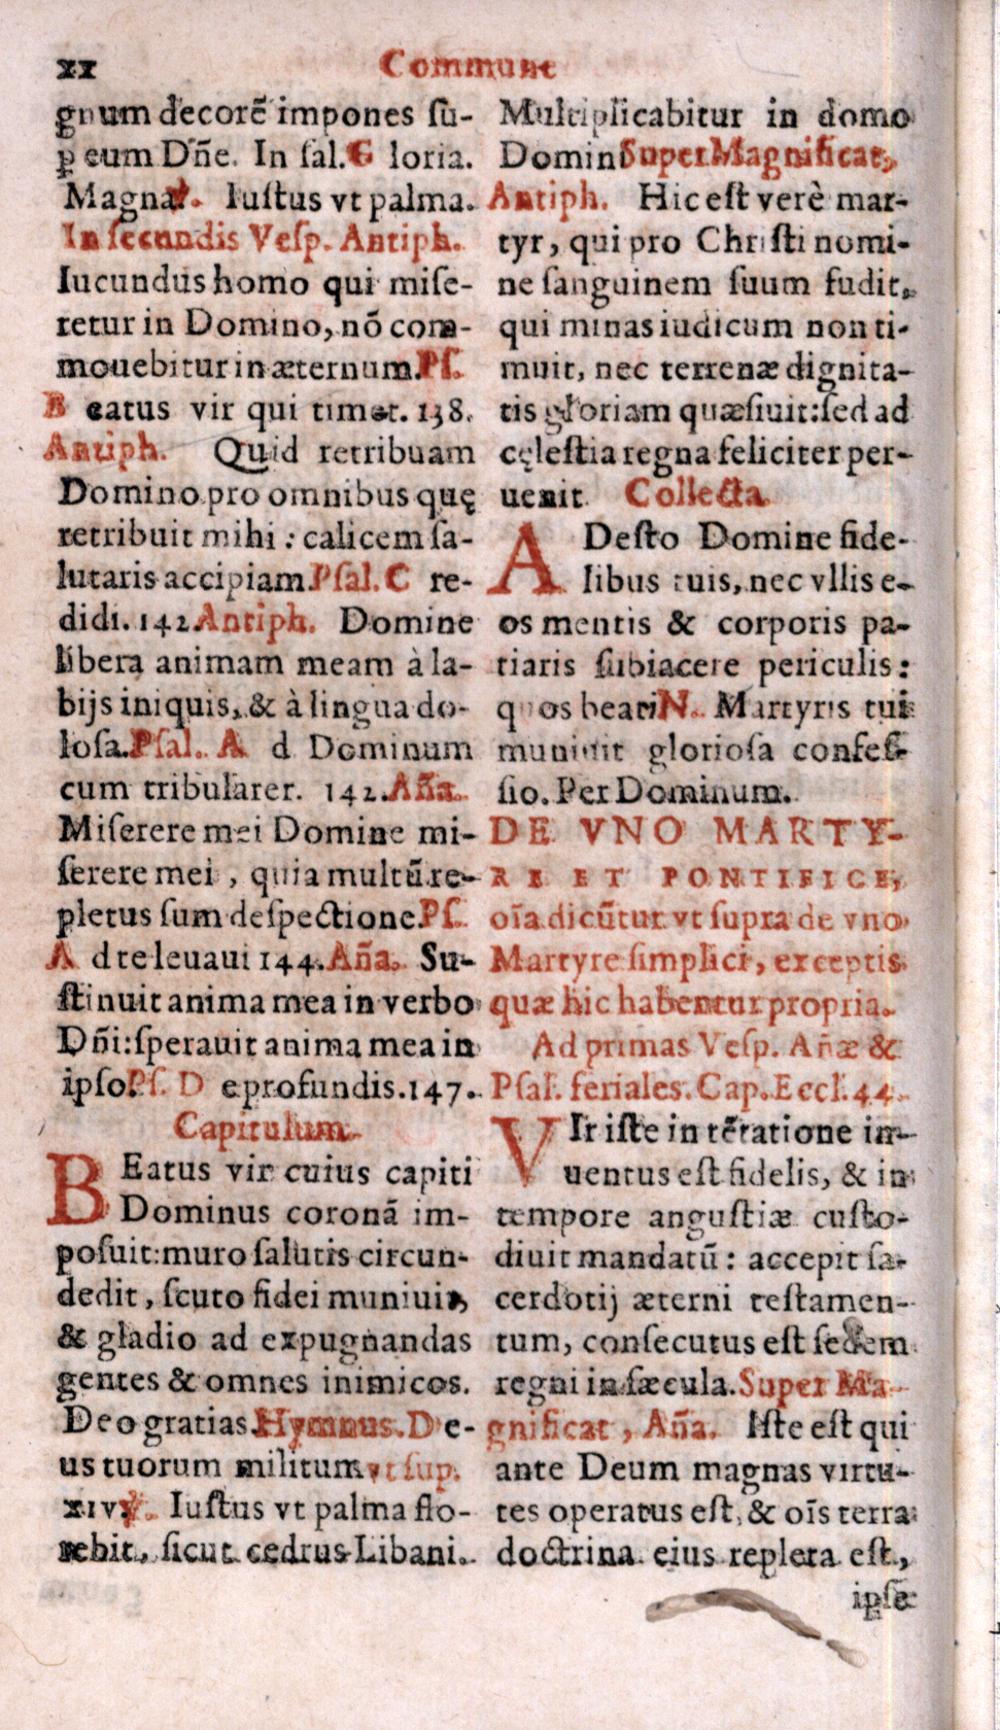 xx
Commune
gnum decorẽ impones ſu-
ꝑ eum Dñe. In ſal. G loria.
Magna ℣. Iuſtus vt palma.
In ſecundis Veſp. Antiph.
Iucundus homo qui miſe-
retur in Domino, nõ com-
mouebitur in æternum. Pſ.
B eatus vir qui timet. 138.
Antiph. Quid retribuam
Domino pro omnibus quę
retribuit mihi : calicem ſa-
lutaris accipiam. Pſal. C re-
didi. 142. Antiph. Domine
libera animam meam à la-
bijs iniquis, & à lingua do-
loſa. Pſal. A d Dominum
cum tribularer. 142. Aña.
Miſerere mei Domine mi-
ſerere mei , quia multũ re-
pletus ſum deſpectione. Pſ.
A d te leuaui 144. Aña. Su-
ſtinuit anima mea in verbo
Dñi: ſperauit anima mea in
ipſo. Pſ. D e profundis. 147.
Capitulum.
BEatus vir cuius capiti
Dominus coronã im-
poſuit: muro ſalutis circun-
dedit , ſcuto fidei muniuit,
& gladio ad expugnandas
gentes & omnes inimicos.
Deo gratias. Hymnus. D e-
us tuorum militum vt ſup.
xiv ℣. Iuſtus vt palma flo-
rebit, ſicut cedrus Libani.
Multiplicabitur in domo
Domini Super Magnificat,
Antiph. Hic eſt verè mar-
tyr, qui pro Chriſti nomi-
ne ſanguinem ſuum fudit,
qui minas iudicum non ti-
muit, nec terrenæ dignita-
tis gloriam quæſiuit: ſed ad
cęleſtia regna feliciter per-
uenit. Collecta
ADeſto Domine fide-
libus tuis, nec vllis e-
os mentis & corporis pa-
tiaris ſubiacere periculis :
quos beati N. Martyris tui
muniuit glorioſa confeſ-
ſio. Per Dominum.
DE VNO MARTY-
RE ET PONTIFICE,
oĩa dicũtur vt ſupra de vno
Martyre ſimplici, exceptis
quæ hic habentur propria.
Ad primas Veſp. Añæ &
Pſal. feriales. Cap. Eccl. 44.
VIr iſte in tẽtatione in-
uentus eſt fidelis, & in
tempore anguſtiæ cuſto-
diuit mandatũ : accepit ſa-
cerdotij æterni teſtamen-
tum, conſecutus eſt ſedem
regni in ſæcula. Super Ma-
gnificat , Aña. Iſte eſt qui
ante Deum magnas virtu-
tes operatus eſt, & oĩs terra
doctrina eius repleta eſt,
ipſe